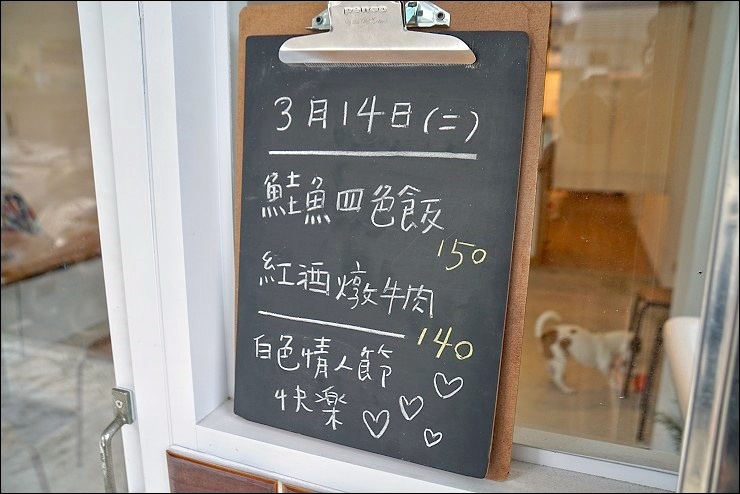 3月14日(二)
鮭魚四色飯
150
紅酒燉牛肉
140
白色情人節
快樂